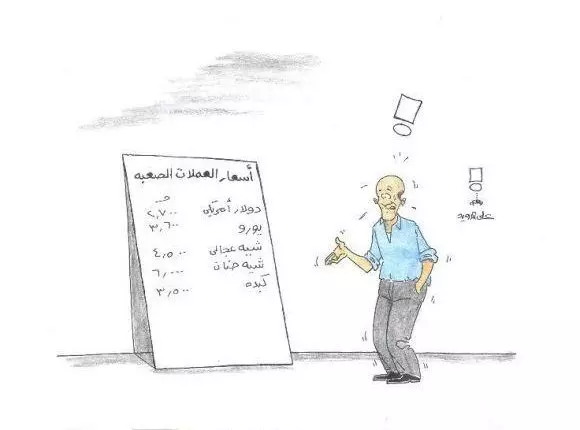 أسعار العملات الصعبه
دولار أمريكي ٢,٧٠٠
يورو ٣,٦٠٠
شيه عجالي ٤,٥٠٠
شيه ضان ٦,٠٠٠
كبده ٣,٥٠٠